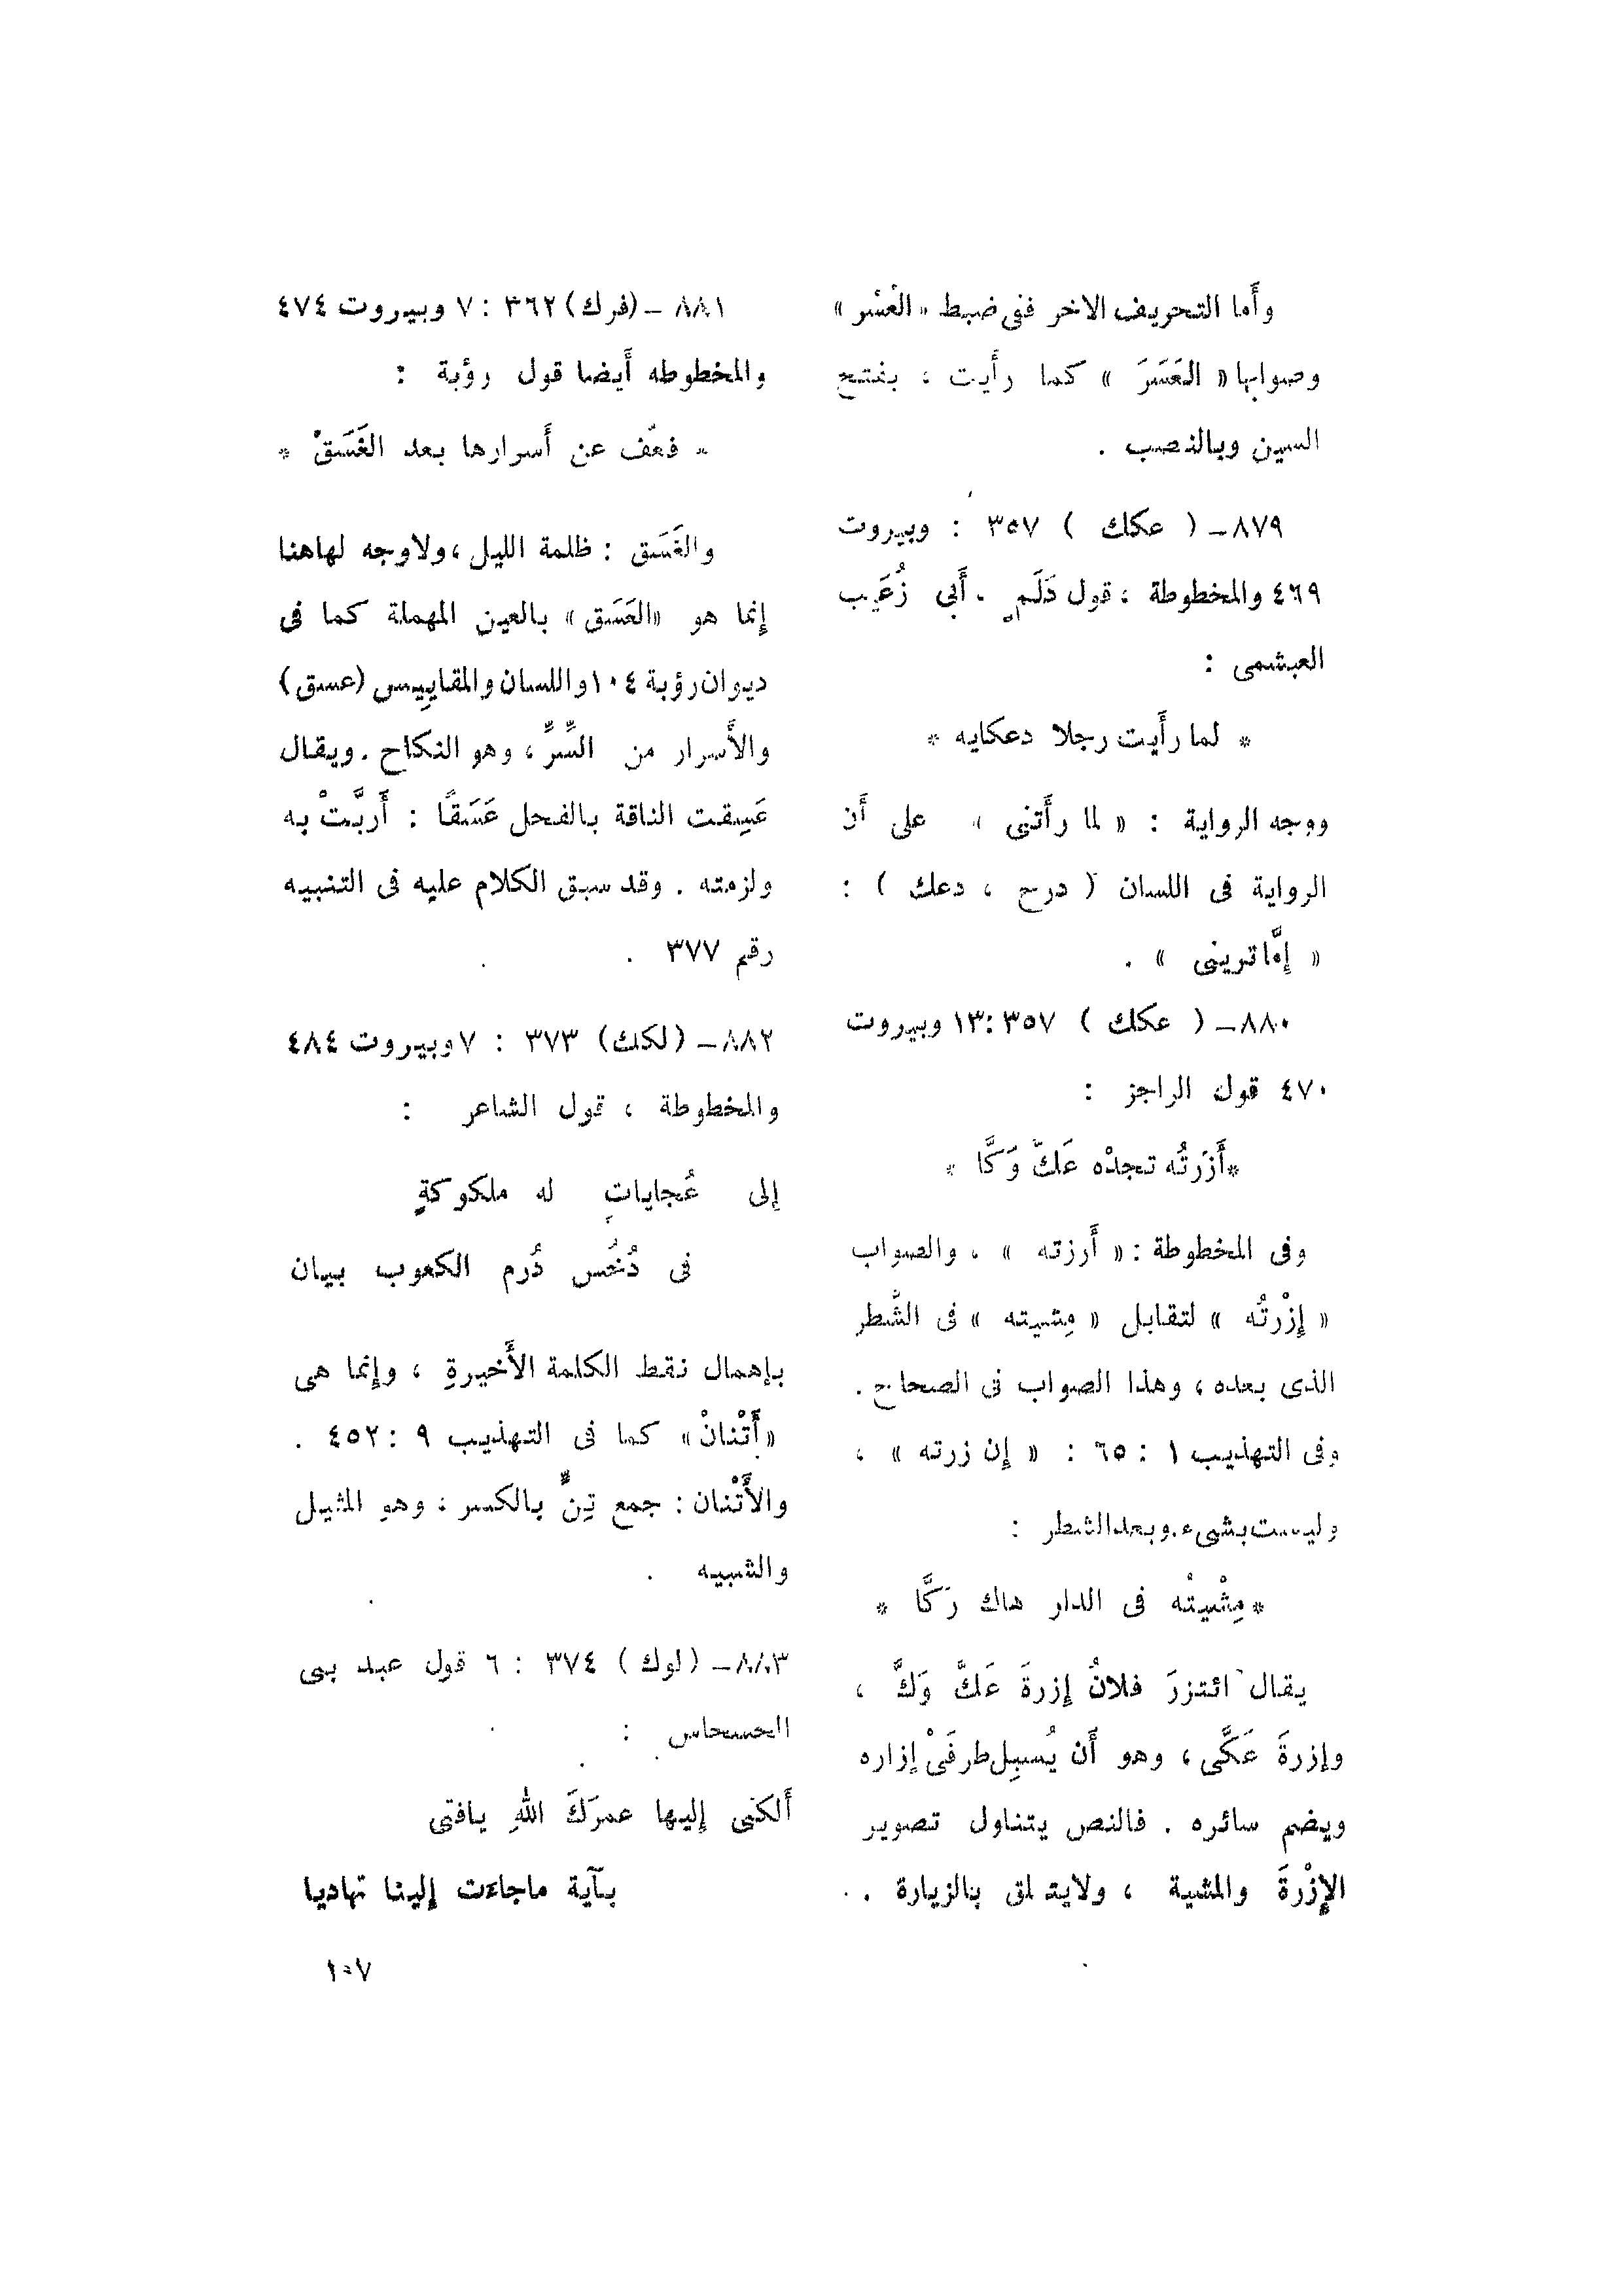 وأَما التحريف الاخر ففى ضبط « العُسْر »
وصوابها « العَسَرَ » كما رأَيت ، بفتح
السين وبالنصب .
٨٧٩ــ ( عكك ) ٣٥٧ : وبيروت
٤٦٩ والمخطوطة ، قول دَلَم أَبى زُعَيب
العبشمى :
* لما رأَيت رجلا دعكايه *
ووجه الرواية : « لما رأَتنى » على أَن
الرواية فى اللسان ( درح ، دعك ) :
« إِمَّا ترينى » .
٨٨٠ــ ( عكك ) ٣٥٧ :١٣ وبيروت
٤٧٠ قول الراجز :
*أَزَرتُه تجدْه عَكَّ وَكَّا *
وفى المخطوطة : « أَرزته » ، والصواب
« إِزْرتُه » لتقابل « مِشيته » فى الشَّطر
الذى بعده ، وهذا الصواب فى الصحاح .
وفى التهذيب ١ : ٦٥ : « إِن زرته » ،
وليست بشىء . وبعد الشطر :
*مِشْيتُه فى الدار هاك رَكَّا *
يقال ائتزرَ فلانٌ إِزرةَ عَكَّ وَكَّ ،
وإِزرةَ عَكَّى ، وهو أَن يُسبِل طرفَىْ إِزاره
ويضم سائره . فالنص يتناول تصوير
الإِزْرةَ والمشية ، ولايتعلق بالزيارة .
٨٨١ ــ (فرك) ٣٦٢ : ٧ وبيروت ٤٧٤
والمخطوطه أَيضا قول رؤبة :
* فعَفّ عن أَسرارها بعد الغَسَقْ *
والغَسَق : ظلمة الليل ، ولاوجه لهاهنا
إِنما هو «العَسَق» بالعين المهملة كما فى
ديوان رؤبة ١٠٤ واللسان والمقاييس (عسق)
والأَسرار من السِّرِّ ، وهو النكاح . ويقال
عَسِقت الناقة بالفحل عَسَقًا : أَربَّتْ به
ولزمته . وقد سبق الكلام عليه فى التنبيه
رقم ٣٧٧ .
٨٨٢ــ (لكك) ٣٧٣ : ٧ وبيروت ٤٨٤
والمخطوطة ، قول الشاعر :
إِلى عُجاياتٍ له ملكوكةٍ
فى دُخُس دُرم الكعوب بيان
بإِهمال نقط الكلمة الأَخيرةِ ، وإِنما هى
«أَتْنانْ» كما فى التهذيب ٩ : ٤٥٢ .
والأَتْنان : جمع تِنٍّ بالكسر ، وهو المثيل
والشبيه .
٨٨٣ــ (لوك) ٣٧٤ : ٦ قول عبد بنى
الحسحاس :
أَلكنى إِليها عمرَكَ اللهِ يافتى
بآية ماجاءت إِلينا تهاديا
١٠٧